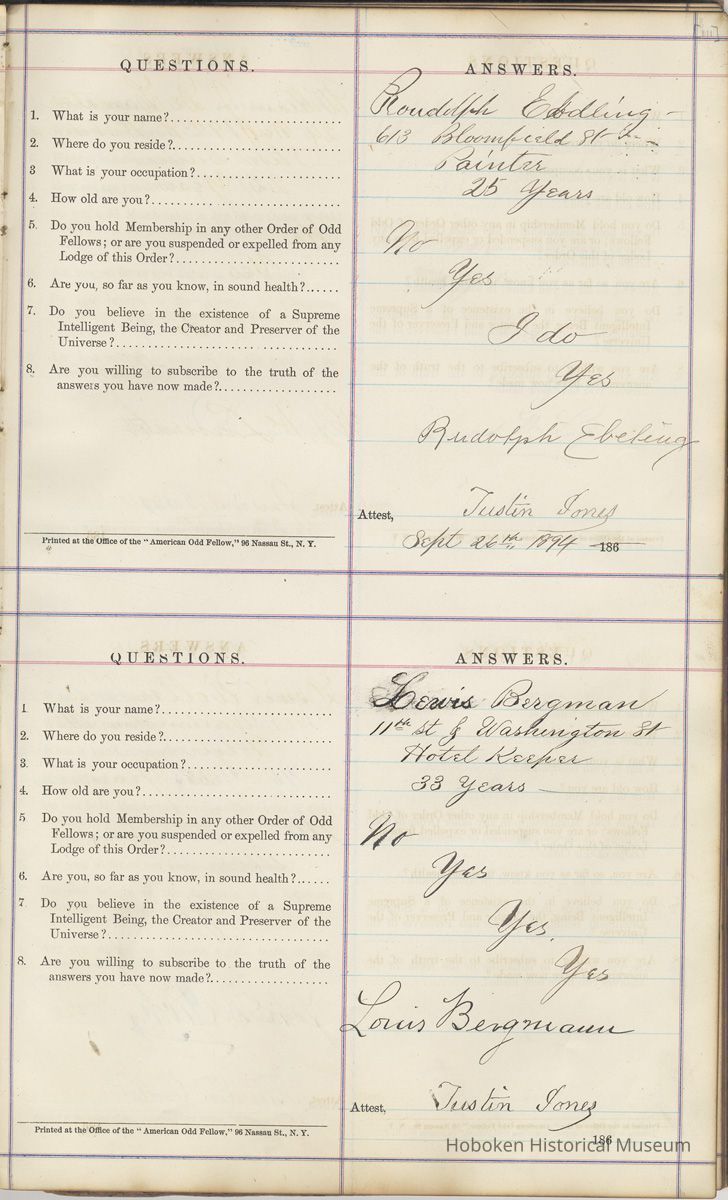 QUESTIONS.
ANSWERS.
1. What is your name?
Roudolph Ebdling
2. Where do you reside?
613 Bloomfield St
3 What is your occupation?
Painter
4. How old are you?
25 Years
5. Do you hold Membership in any other Order of Odd
Fellows; or are you suspended or expelled from any
Lodge of this Order?
No
6. Are you, so far as you know, in sound health?
Yes
7. Do you believe in the existence of a Supreme
Intelligent Being, the Creator and Preserver of the
Universe?
I do
8. Are you willing to subscribe to the truth of the
answers you have now made?
Yes
Rudolph Ebeling
Attest, Justin Jones
Printed at the Office of the "American Odd Fellow," 96 Nassau St., N. Y.
Sept 26th 1894 186
QUESTIONS.
ANSWERS.
1 What is your name?
Lewis Bergman
2. Where do you reside?
11th St & Washington St
3. What is your occupation?
Hotel Keeper
4. How old are you?
33 Years
5 Do you hold Membership in any other Order of Odd
Fellows; or are you suspended or expelled from any
Lodge of this Order?
No
6. Are you, so far as you know, in sound health?
Yes
7 Do you believe in the existence of a Supreme
Intelligent Being, the Creator and Preserver of the
Universe?
Yes
8. Are you willing to subscribe to the truth of the
answers you have now made?
Yes
Louis Bergmann
Attest, Justin Jones
Printed at the Office of the "American Odd Fellow," 96 Nassau St., N. Y.
186
Hoboken Historical Museum